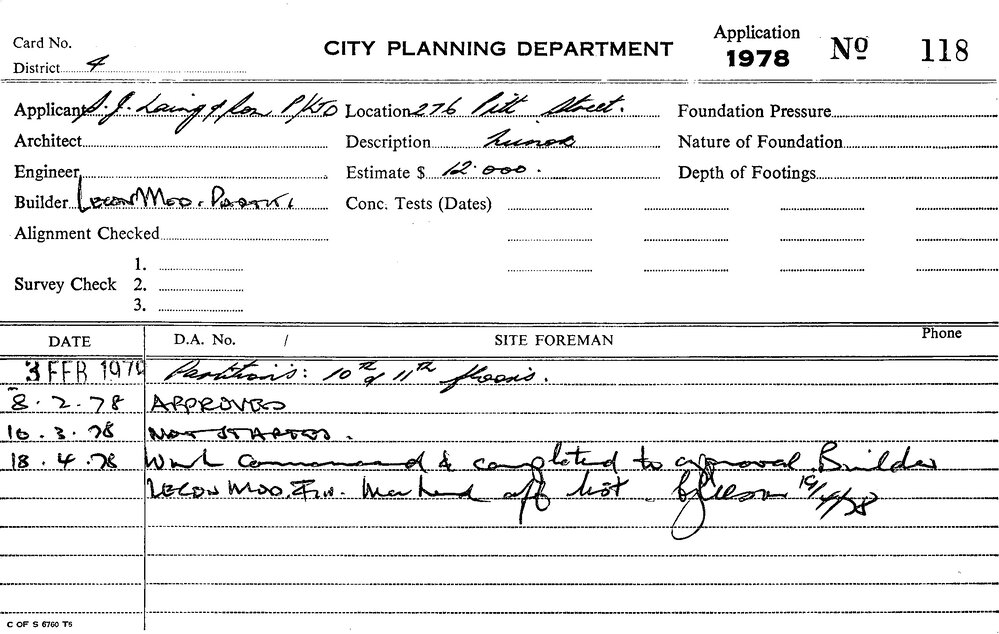 Card No.
District 4
CITY PLANNING DEPARTMENT
Application
1978 No 118
Applicant S. J. Laing & Son P/L Location 276 Pitt Street. Foundation Pressure
Architect Description Minor Nature of Foundation
Engineer Estimate $ 12.000. Depth of Footings
Builder Conc. Tests (Dates)
Alignment Checked
Survey Check 1.
2.
3.
DATE D.A. No. / SITE FOREMAN Phone
3 FEB 197 Partitions: 10th & 11th floors.
8.2.78 APPROVED
10.3.78 NOT STARTED.
18.4.78 Work Commenced & completed to approval. Builder
LECON MOD. Marked off list 19/4/78
C OF S 6760 T6